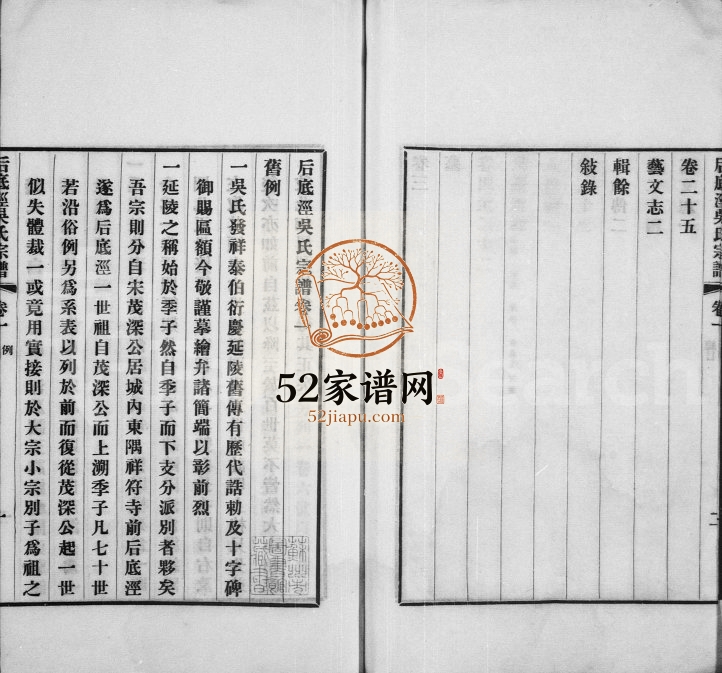 卷二十五
藝文志二
輯餘
敍錄
后底涇吳氏宗譜卷一
舊例
一吳氏發祥泰伯衍慶延陵舊傳有歷代誥勅及十字碑
御賜區額今敬謹摹繪弁諸簡端以彰前烈
一延陵之稱始於季子然自季子而下支分派別者夥矣
吾宗則分自宋茂深公居城內東隅祥符寺前后底涇
遂爲后底涇一世祖自茂深公而上溯季子凡七十世
若沿俗例另爲系表以列於前而復從茂深公起一世
似失體裁一或竟用實接則於大宗小宗別子爲祖之
后底涇吳氏宗譜
卷一
例
一
52家谱网
52jiapu.com